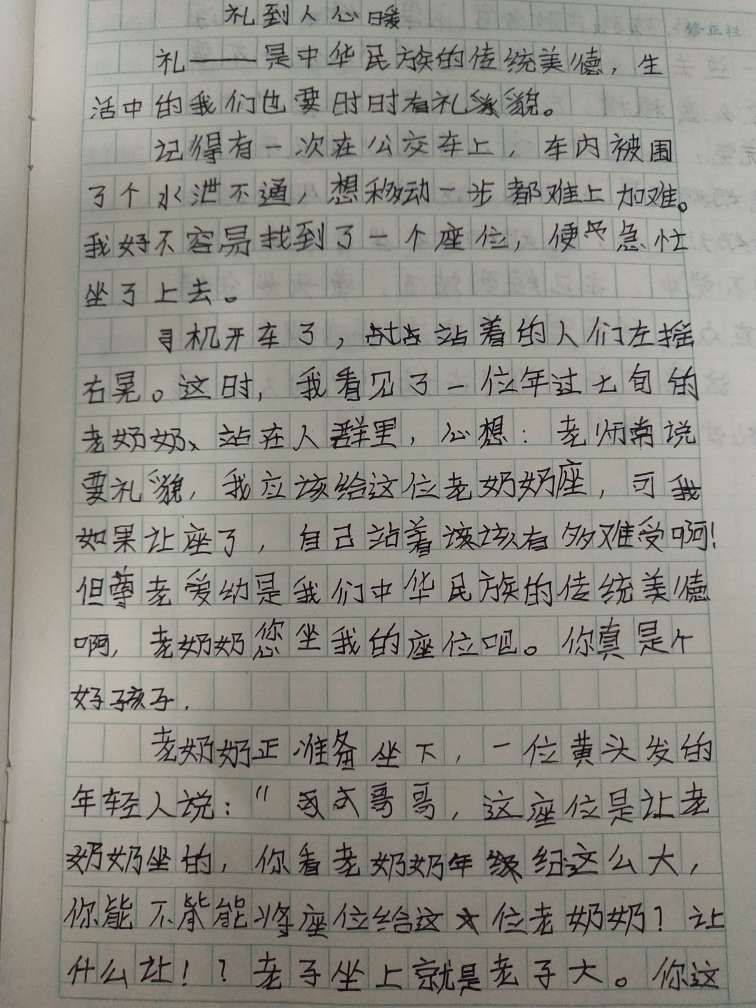 礼到人心暖
礼——是中华民族的传统美德，生
活中的我们也要时时有礼貌。
记得有一次在公交车上，车内被围
了个水泄不通，想移动一步都难上加难。
我好不容易找到了一个座位，便急忙
坐了上去。
司机开车了，站着的人们左摇
右晃。这时，我看见了一位年过七旬的
老奶奶、站在人群里，心想：老师常说
要礼貌，我应该给这位老奶奶座，可我
如果让座了，自己站着该有多难受啊！
但尊老爱幼是我们中华民族的传统美德
啊，老奶奶您坐我的座位吧。你真是个
好孩子.
老奶奶正准备坐下，一位黄头发的
年轻人说：“哥哥，这座位是让老
奶奶坐的，你看老奶奶年纪这么大，
你能不能将座位给这位老奶奶？让
什么让！？老子坐上就是老子大。你这
修正栏